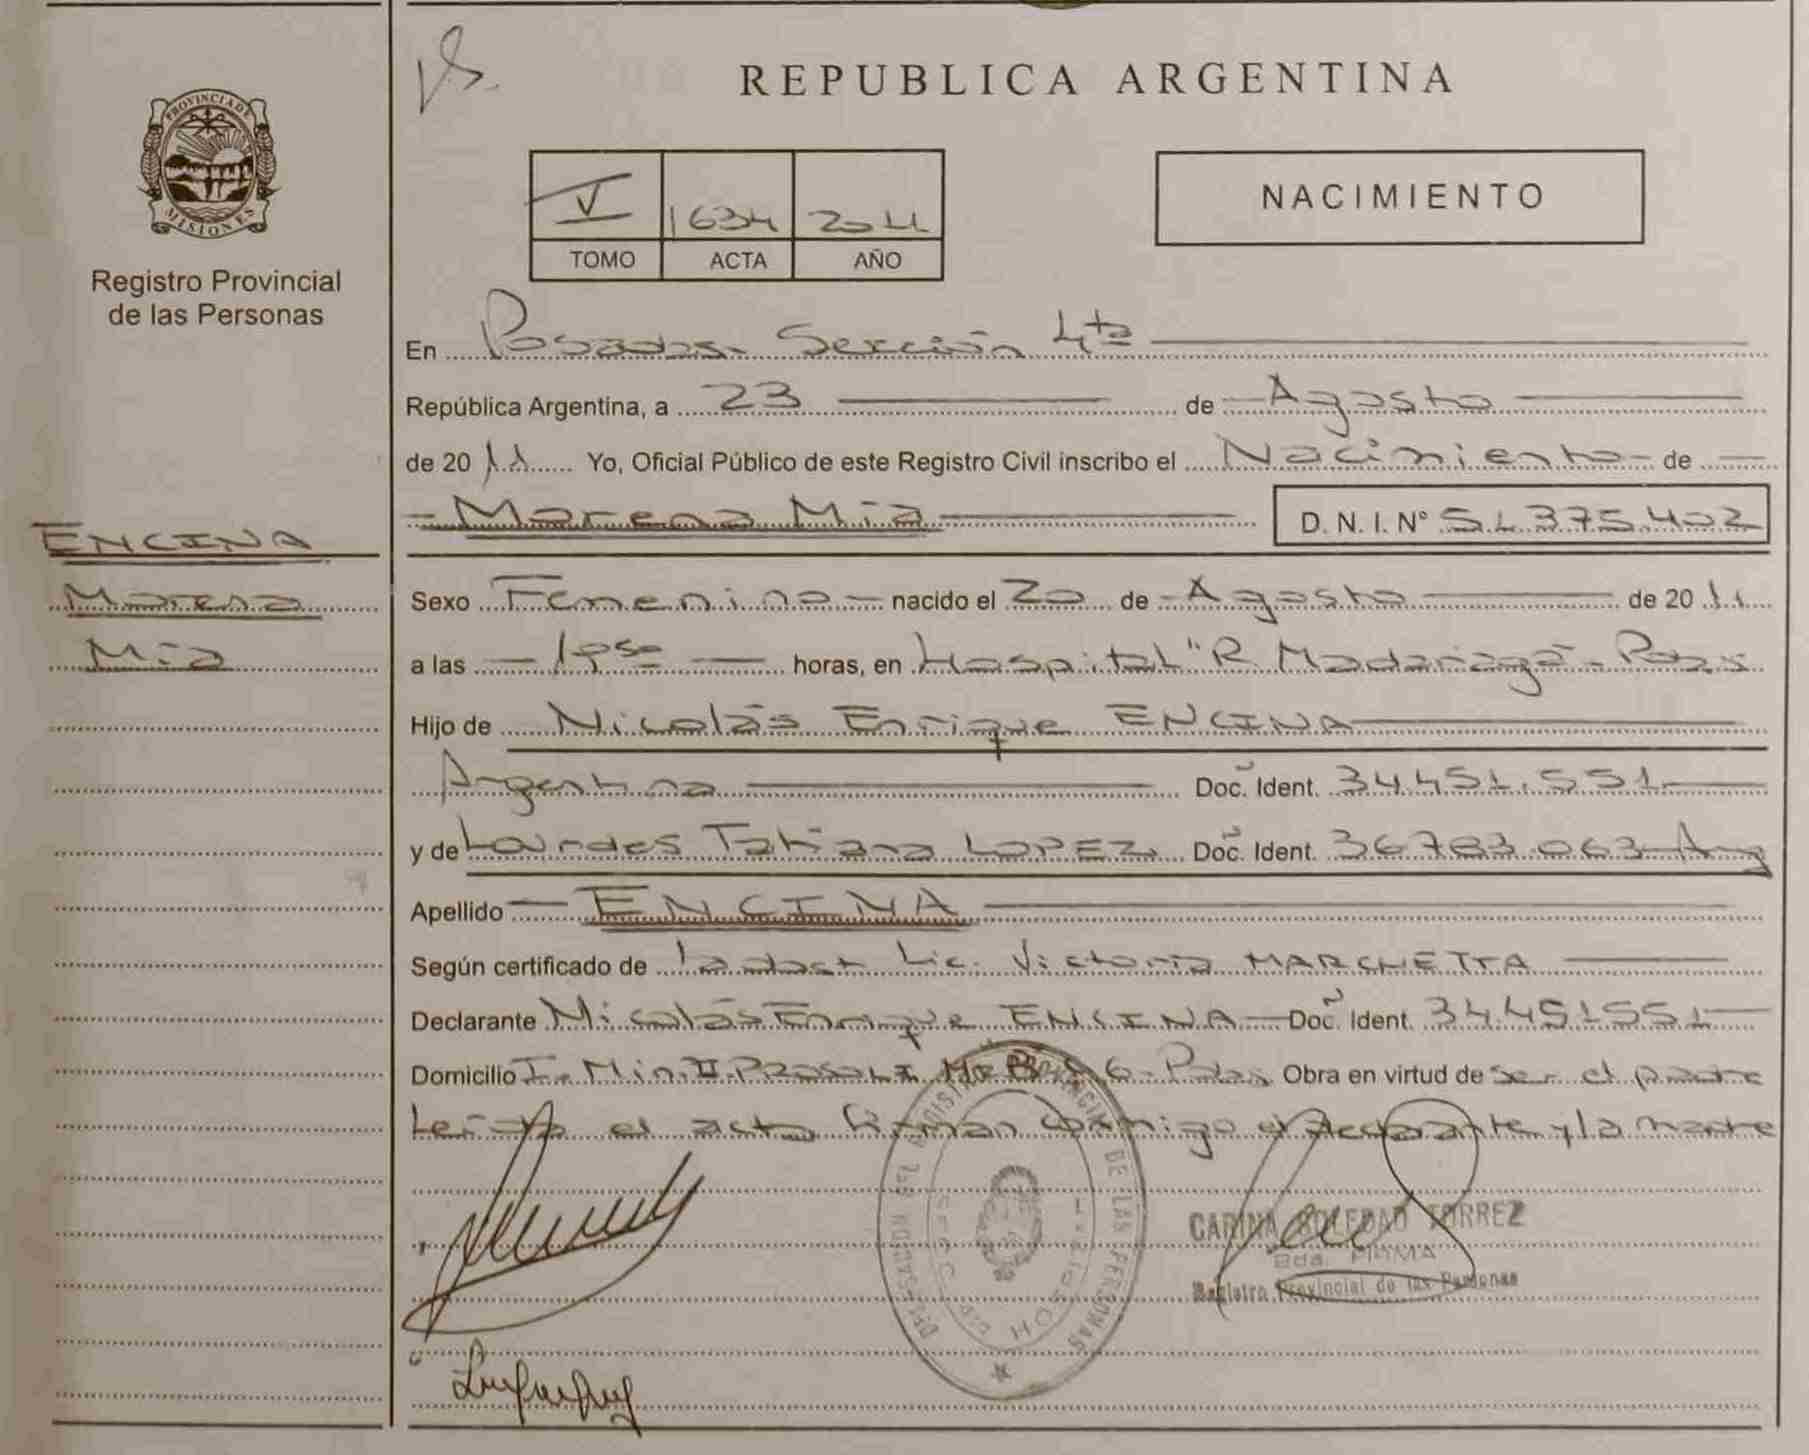 REPUBLICA ARGENTINA
PROVINCIA DE MISIONES
Registro Provincial
de las Personas
V 1634 2011
TOMO ACTA AÑO
NACIMIENTO
En Posadas Sección 4ta
República Argentina, a 23 de Agosto
de 2011 Yo, Oficial Público de este Registro Civil inscribo el Nacimiento de
Morena Mía D. N. I. Nº 51.375.402
ENCINA
Morena
Mía
Sexo Femenino nacido el 20 de Agosto de 2011
a las 19 50 horas, en Hospital "R. Madariaga" - Pdas
Hijo de Nicolás Enrique ENCINA
Argentina Doc. Ident. 34.451.551
y de Lourdes Tatiana LOPEZ Doc. Ident. 36.783.063 Arg
Apellido ENCINA
Según certificado de Lic. Victoria MARCHETTA
Declarante Nicolás Enrique ENCINA Doc. Ident. 34.451551
Domicilio Pdas Obra en virtud de ser el padre
Leída el acta firman conmigo el declarante y la madre
CARINA SOLEDAD TORREZ
FIRMA
Registro Provincial de las Personas
DE LAS PERSONAS